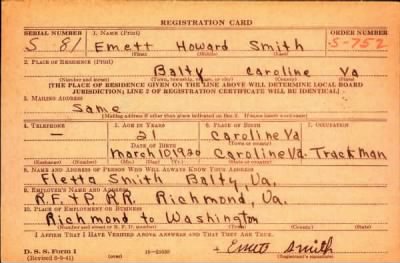 REGISTRATION CARD
SERIAL NUMBER 1. NAME (Print) ORDER NUMBER
S-81 Emett Howard Smith S-752
(First) (Middle) (Last)
2. PLACE OF RESIDENCE (Print)
Balty Caroline Va
(Number and street) (Town, township, village, or city) (County) (State)
[THE PLACE OF RESIDENCE GIVEN ON THE LINE ABOVE WILL DETERMINE LOCAL BOARD
JURISDICTION; LINE 2 OF REGISTRATION CERTIFICATE WILL BE IDENTICAL]
3. MAILING ADDRESS
Same
[Mailing address if other than place indicated on line 2. If same insert word same]
4. TELEPHONE 5. AGE IN YEARS 6. PLACE OF BIRTH 7. OCCUPATION
— 21 Caroline Va
DATE OF BIRTH (Town or county)
March 10 1920 Caroline Va. Trackman
(Exchange) (Number) (Mo.) (Day) (Yr.) (State or country)
8. NAME AND ADDRESS OF PERSON WHO WILL ALWAYS KNOW YOUR ADDRESS
Smith Balty, Va.
9. EMPLOYER'S NAME AND ADDRESS
R.F. & P. R.R. Richmond, Va.
10. PLACE OF EMPLOYMENT OR BUSINESS
Richmond to Washington
(Number and street or R. F. D. number) (Town) (County) (State)
I AFFIRM THAT I HAVE VERIFIED ABOVE ANSWERS AND THAT THEY ARE TRUE.
D. S. S. Form 1 Emett Smith
(Revised 6-9-41) (over) (Registrant's signature)